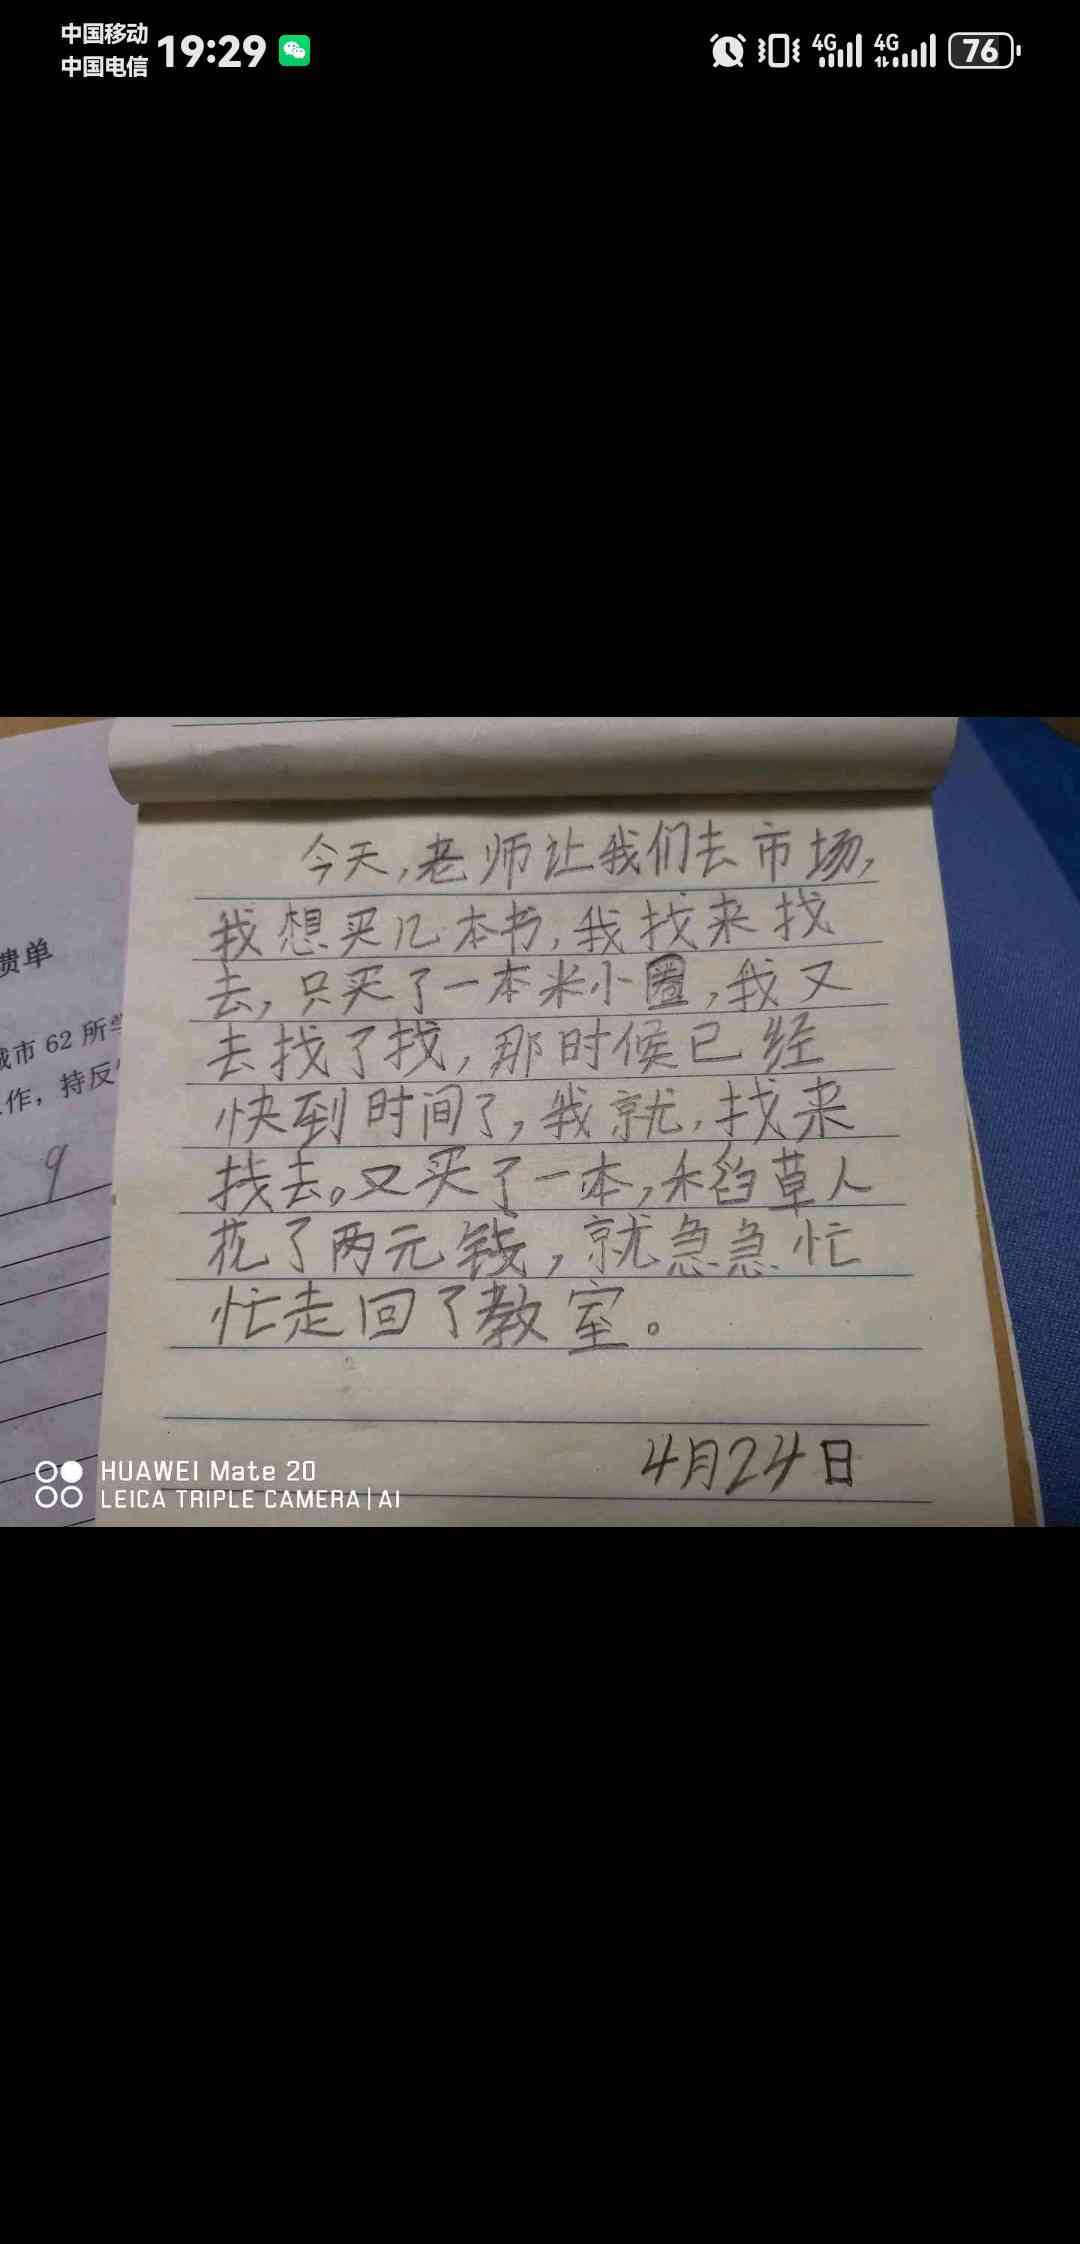 中国移动
中国电信
19:29
4G 4G 76
今天,老师让我们去市场,
我想买几本书,我找来找
去,只买了一本米小圈,我又
去找了找,那时候已经
快到时间了,我就,找来
找去。又买了一本,稻草人
花了两元钱,就急急忙
忙走回了教室。
4月24日
馈单
城市 62 所
工作，持反
9
HUAWEI Mate 20
LEICA TRIPLE CAMERA | AI